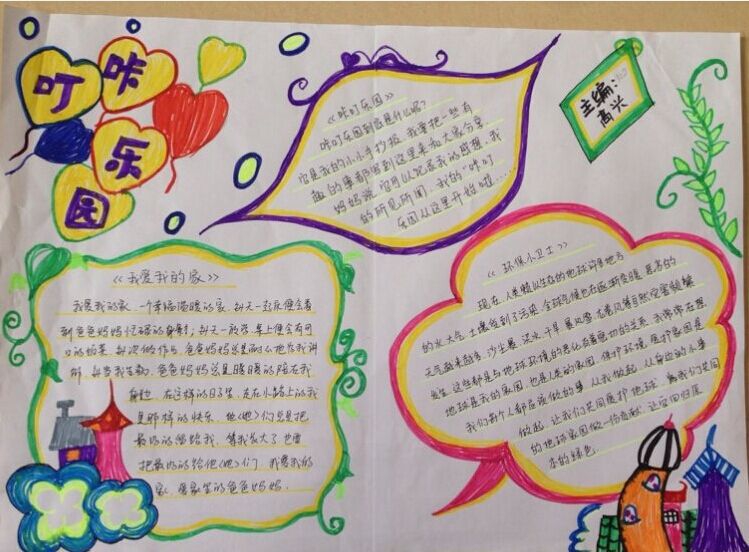 咔
叮
乐
园
主编：
高兴
《咔叮乐园》
咔叮乐园到底是什么呢？
它是我的小小手抄报，我要把一些有
趣的事都写到这里来和大家分享
妈妈说，它可以记录我的感想，我
的所见所闻，我的“咔叮
乐园从这里开始啦……
《我爱我的家》
我爱我的家，一个幸福温暖的家，每天一起床便会看
到爸爸妈妈忙碌的身影；每天一放学，桌上便会有可
口的饭菜，每次做作业，爸爸妈妈总是耐心地为我讲
解，每当我生病，爸爸妈妈总是暖暖的陪在我
身边，在这样的日子里，走在小路上的我
是那样的快乐，他〈她〉们总是把
最好的留给我，等我长大了也要
把最好的给他〈她〉们，我爱我的
家，爱家里的爸爸妈妈。
《环保小卫士》
现在，人类赖以生存的地球许多地方
的水土
受到了污染，全球气候也在逐渐变暖，恶劣的
天气越来越多，沙尘暴、泥水、干旱、暴风雪、龙卷风等自然灾害频繁
发生，这些都是与地球环境的恶化有着密切的关系，我常常在想
地球是我的家园，也是人类的家园，保护环境，爱护家园是
我们每个人都应该做的事，从我做起，从身边的小事
做起，让我们共同爱护地球，为我们共同
的地球家园做一份贡献，让它回归原
本的绿色。